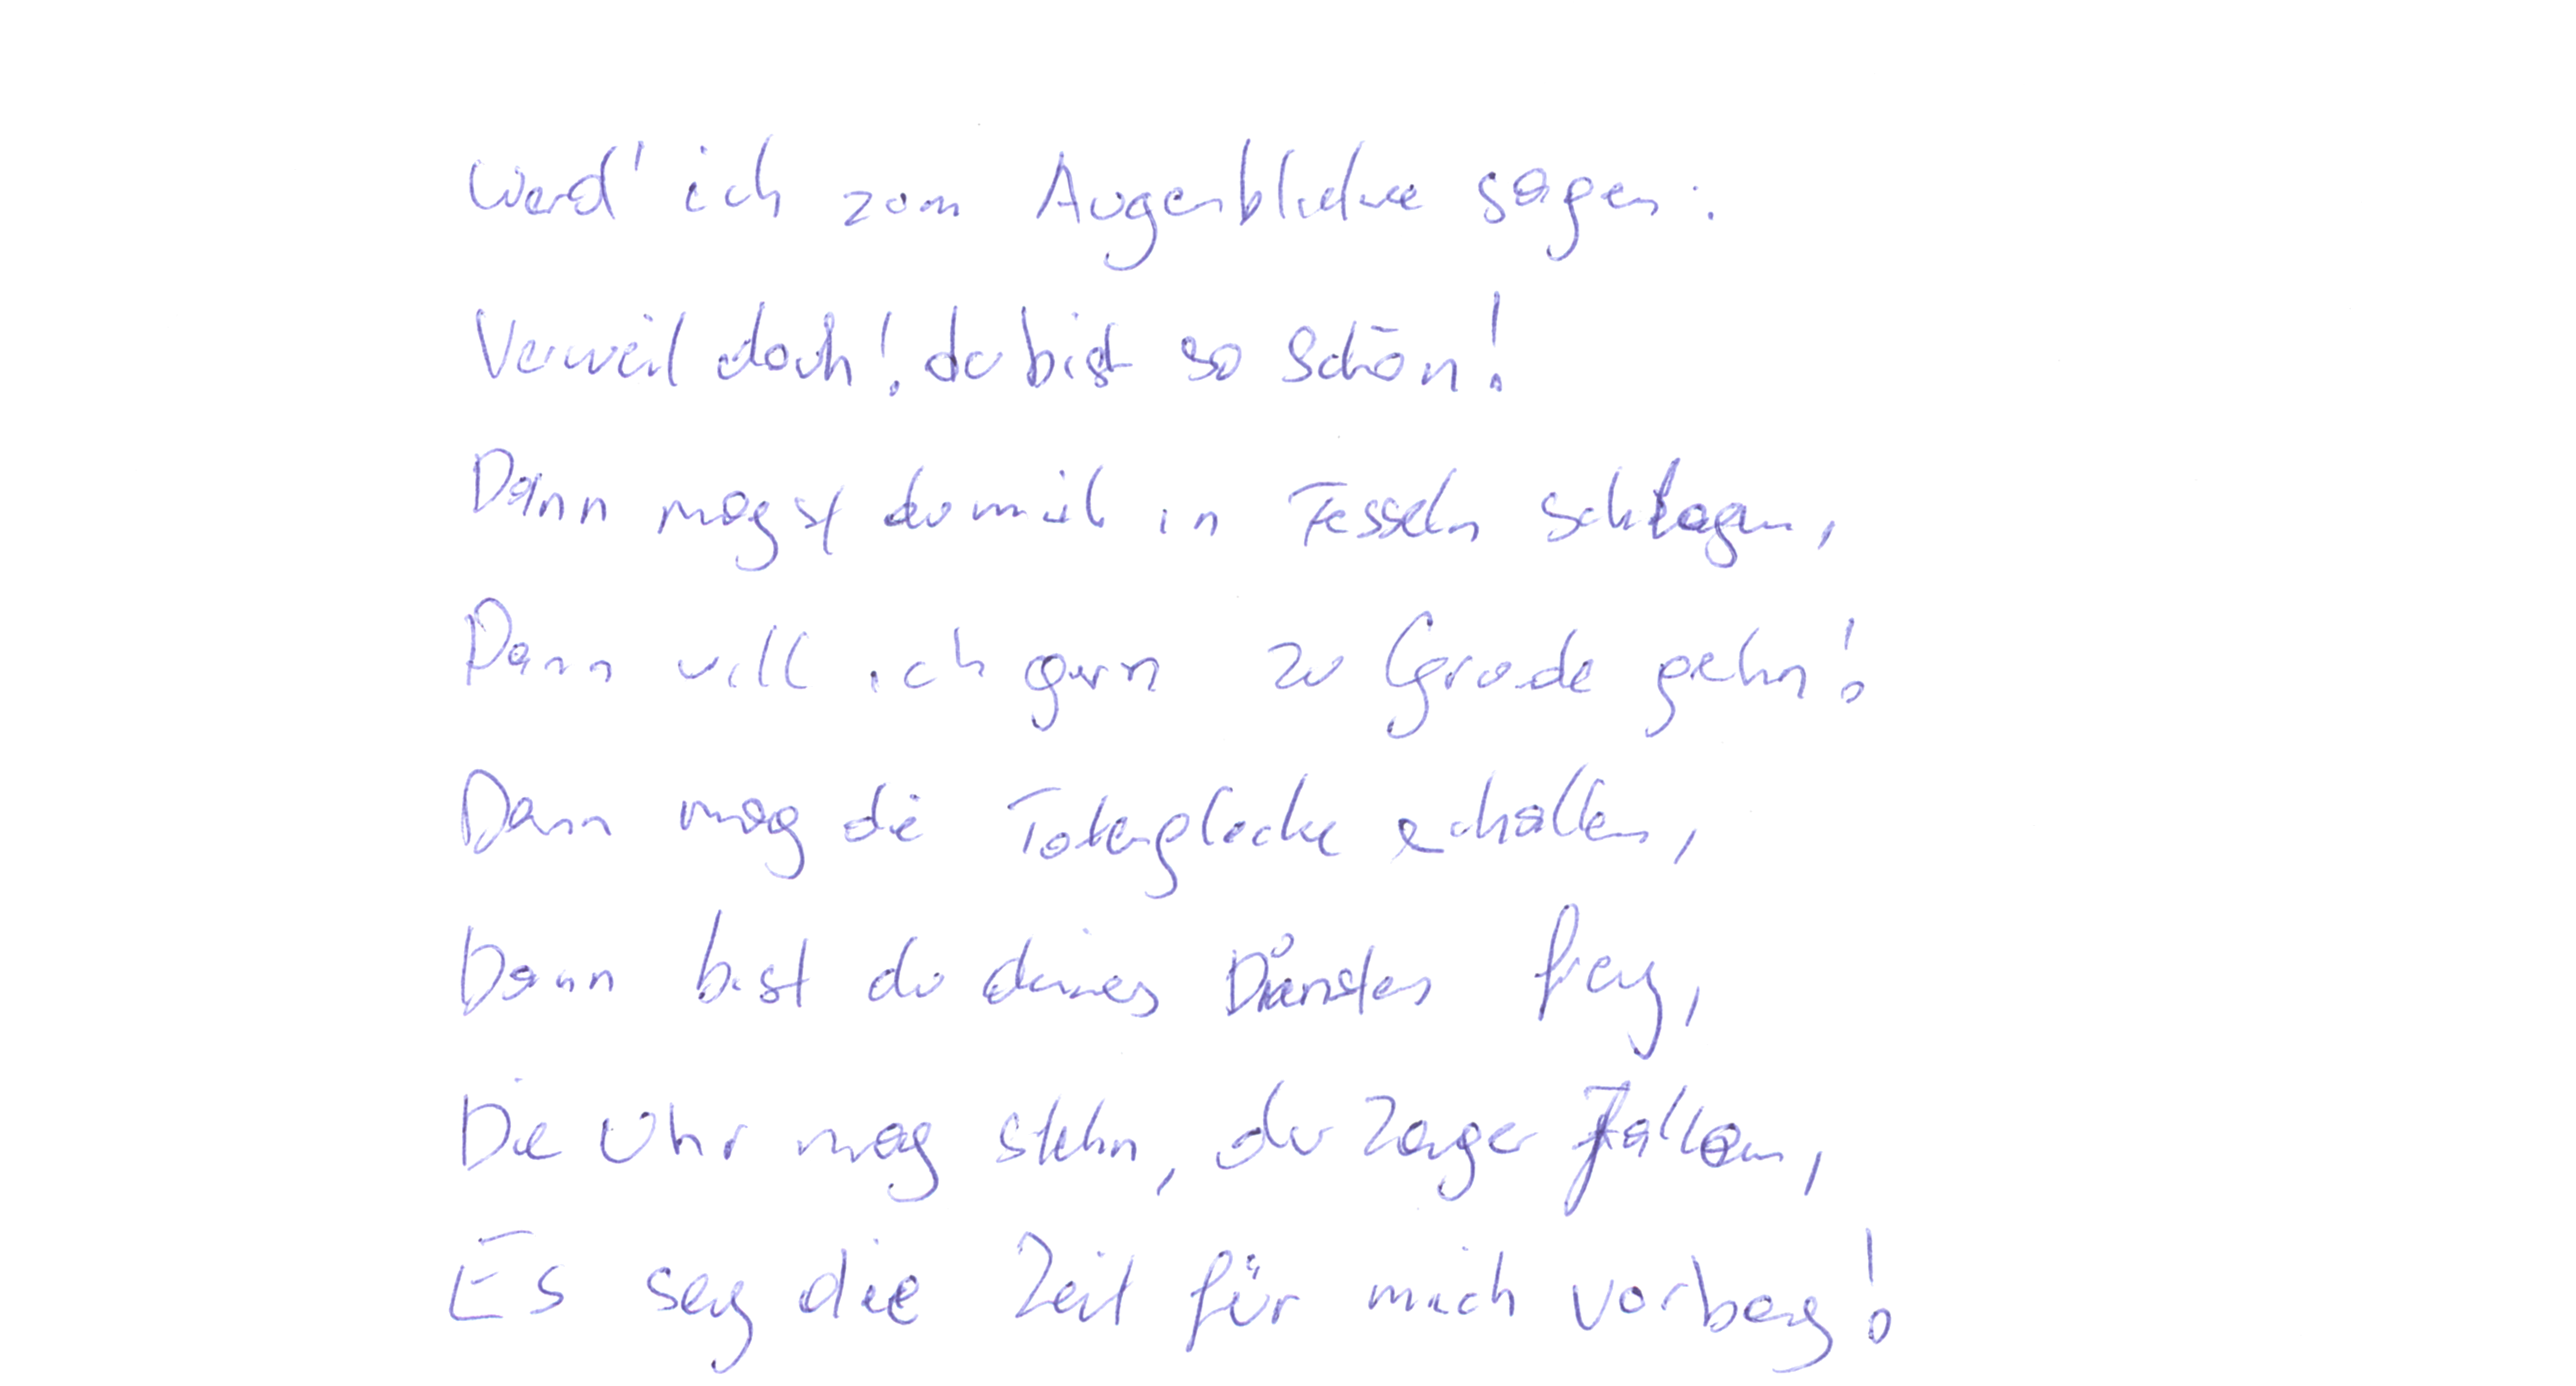 Werd' ich zum Augenblicke sagen:
Verweil doch! du bist so schön!
Dann magst du mich in Fesseln schlagen,
Dann will ich gern zu Grunde gehn!
Dann mag die Totenglocke schallen,
Dann bist du deines Dienstes frey,
Die Uhr mag stehn, der Zeiger fallen,
Es sey die Zeit für mich vorbey!